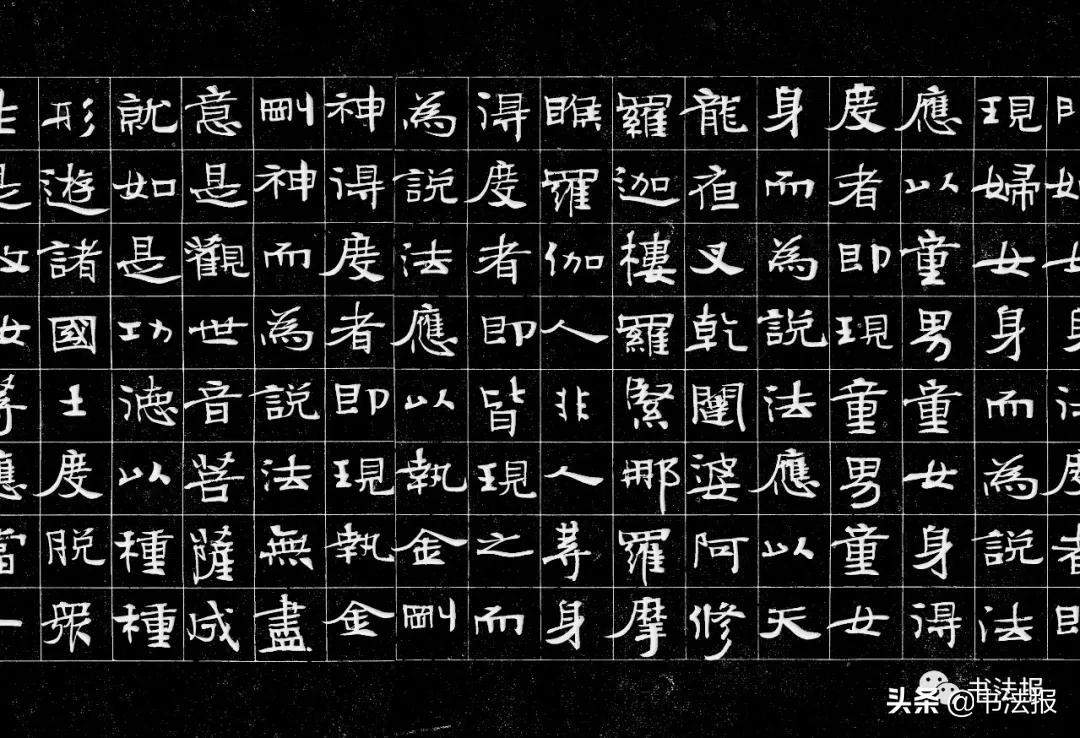 度者即
現婦女身而為說法
應以童男童女身得
度者即現童男童女
身而為說法應以天
龍夜叉乾闥婆阿修
羅迦樓羅緊那羅摩
睺羅伽人非人等身
得度者即皆現之而
為說法應以執金剛
神得度者即現執金
剛神而為說法無盡
意是觀世音菩薩成
就如是功德以種種
形遊諸國土度脫眾
生是故汝等應當一
书法报
头条@书法报